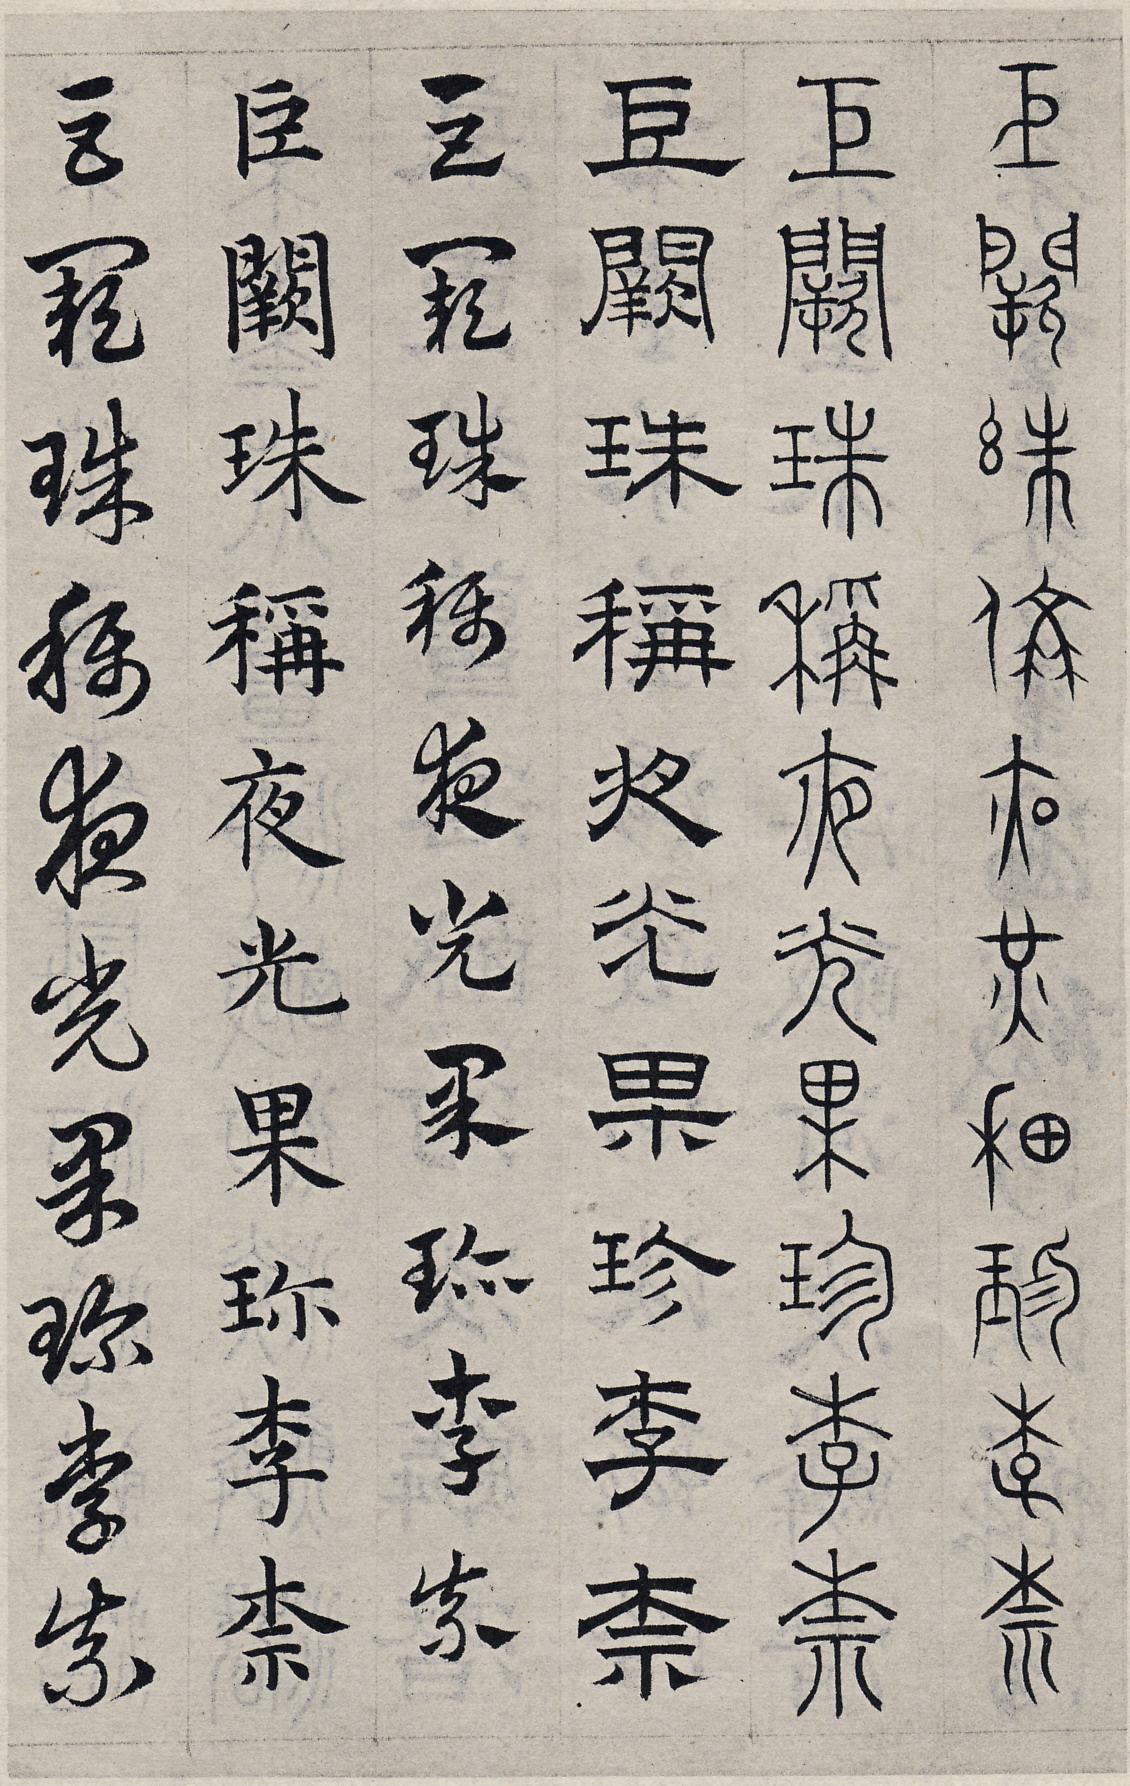 巨闕珠稱夜光果珍李柰
巨闕珠稱夜光果珍李柰
巨闕珠稱夜光果珍李柰
巨闕珠稱夜光果珎李柰
巨闕珠稱夜光果珎李柰
巨闕珠稱夜光果珎李柰